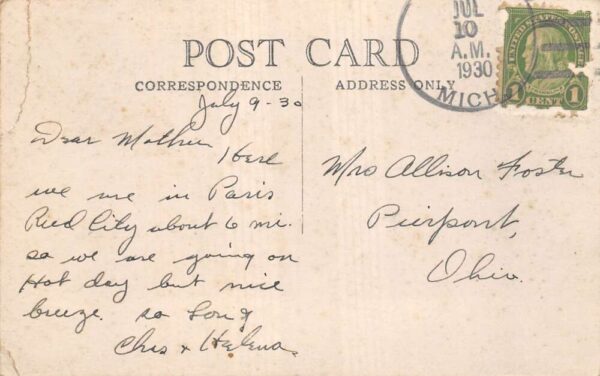 POST CARD
CORRESPONDENCE
ADDRESS ONLY
JUL
10
A.M.
1930
MICH
UNITED STATES
1 CENT 1
July 9 - 30
Dear Mother
Here
we are in Paris
Reed City about 6 mi.
so we are going on
Hot day but nice
breeze. so Long
Chas + Helena.
Mrs Allison Foster
Pierpont,
Ohio.